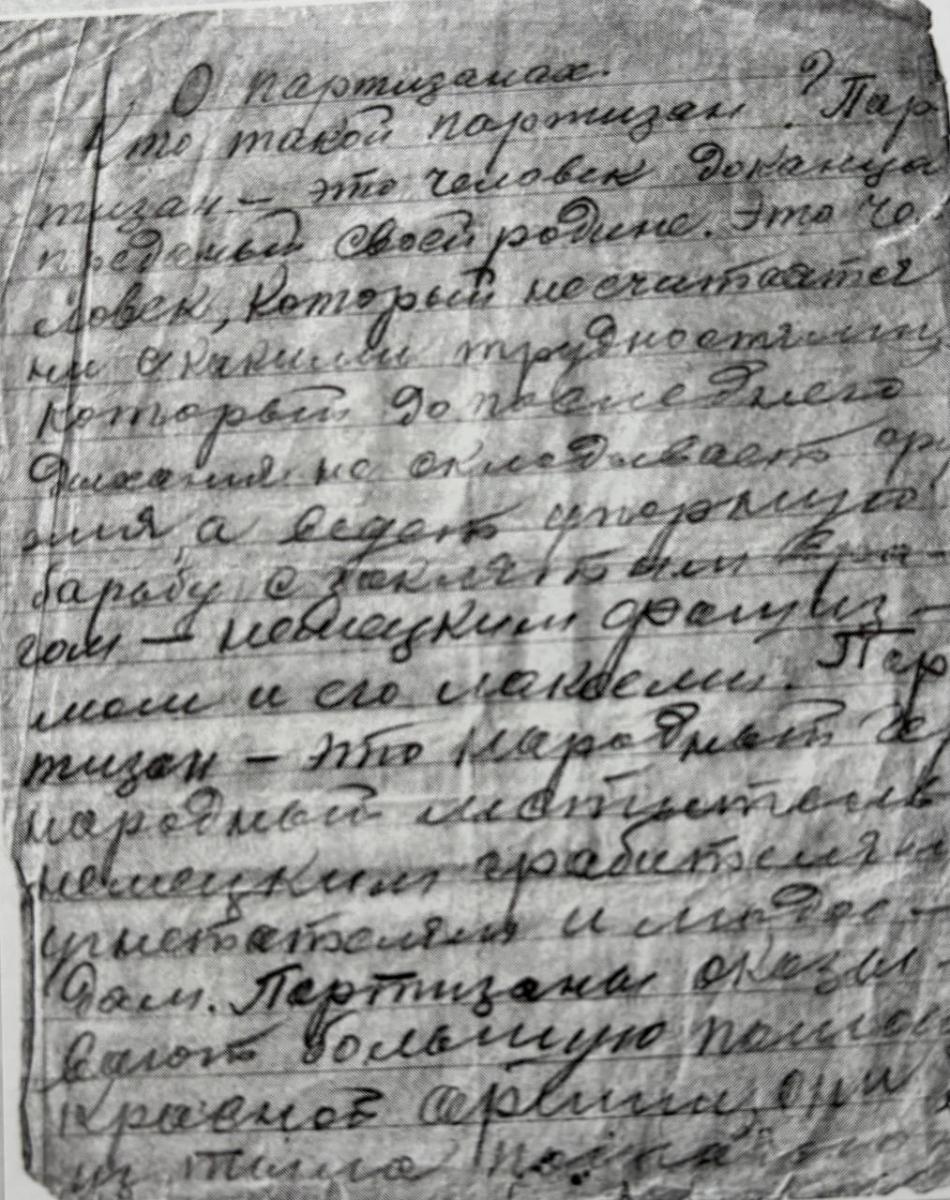 О партизанах.
Кто такой партизан? Пар
тизан – это человек доканца
преданый своей родине. Это че
ловек, который несчитается
ни скакими трудностями,
который до последнего
дыхания не складывает ору
жия, а ведет упорную
барьбу с заклятым вра-
гом – немецким фашиз-
мом и его лакеями. Пар
тизан – это народный
народный мститель
немецким грабителям
угнетателям и людое-
дам. Партизаны оказы-
вают большую помощ
Красной армии, они
из тыла